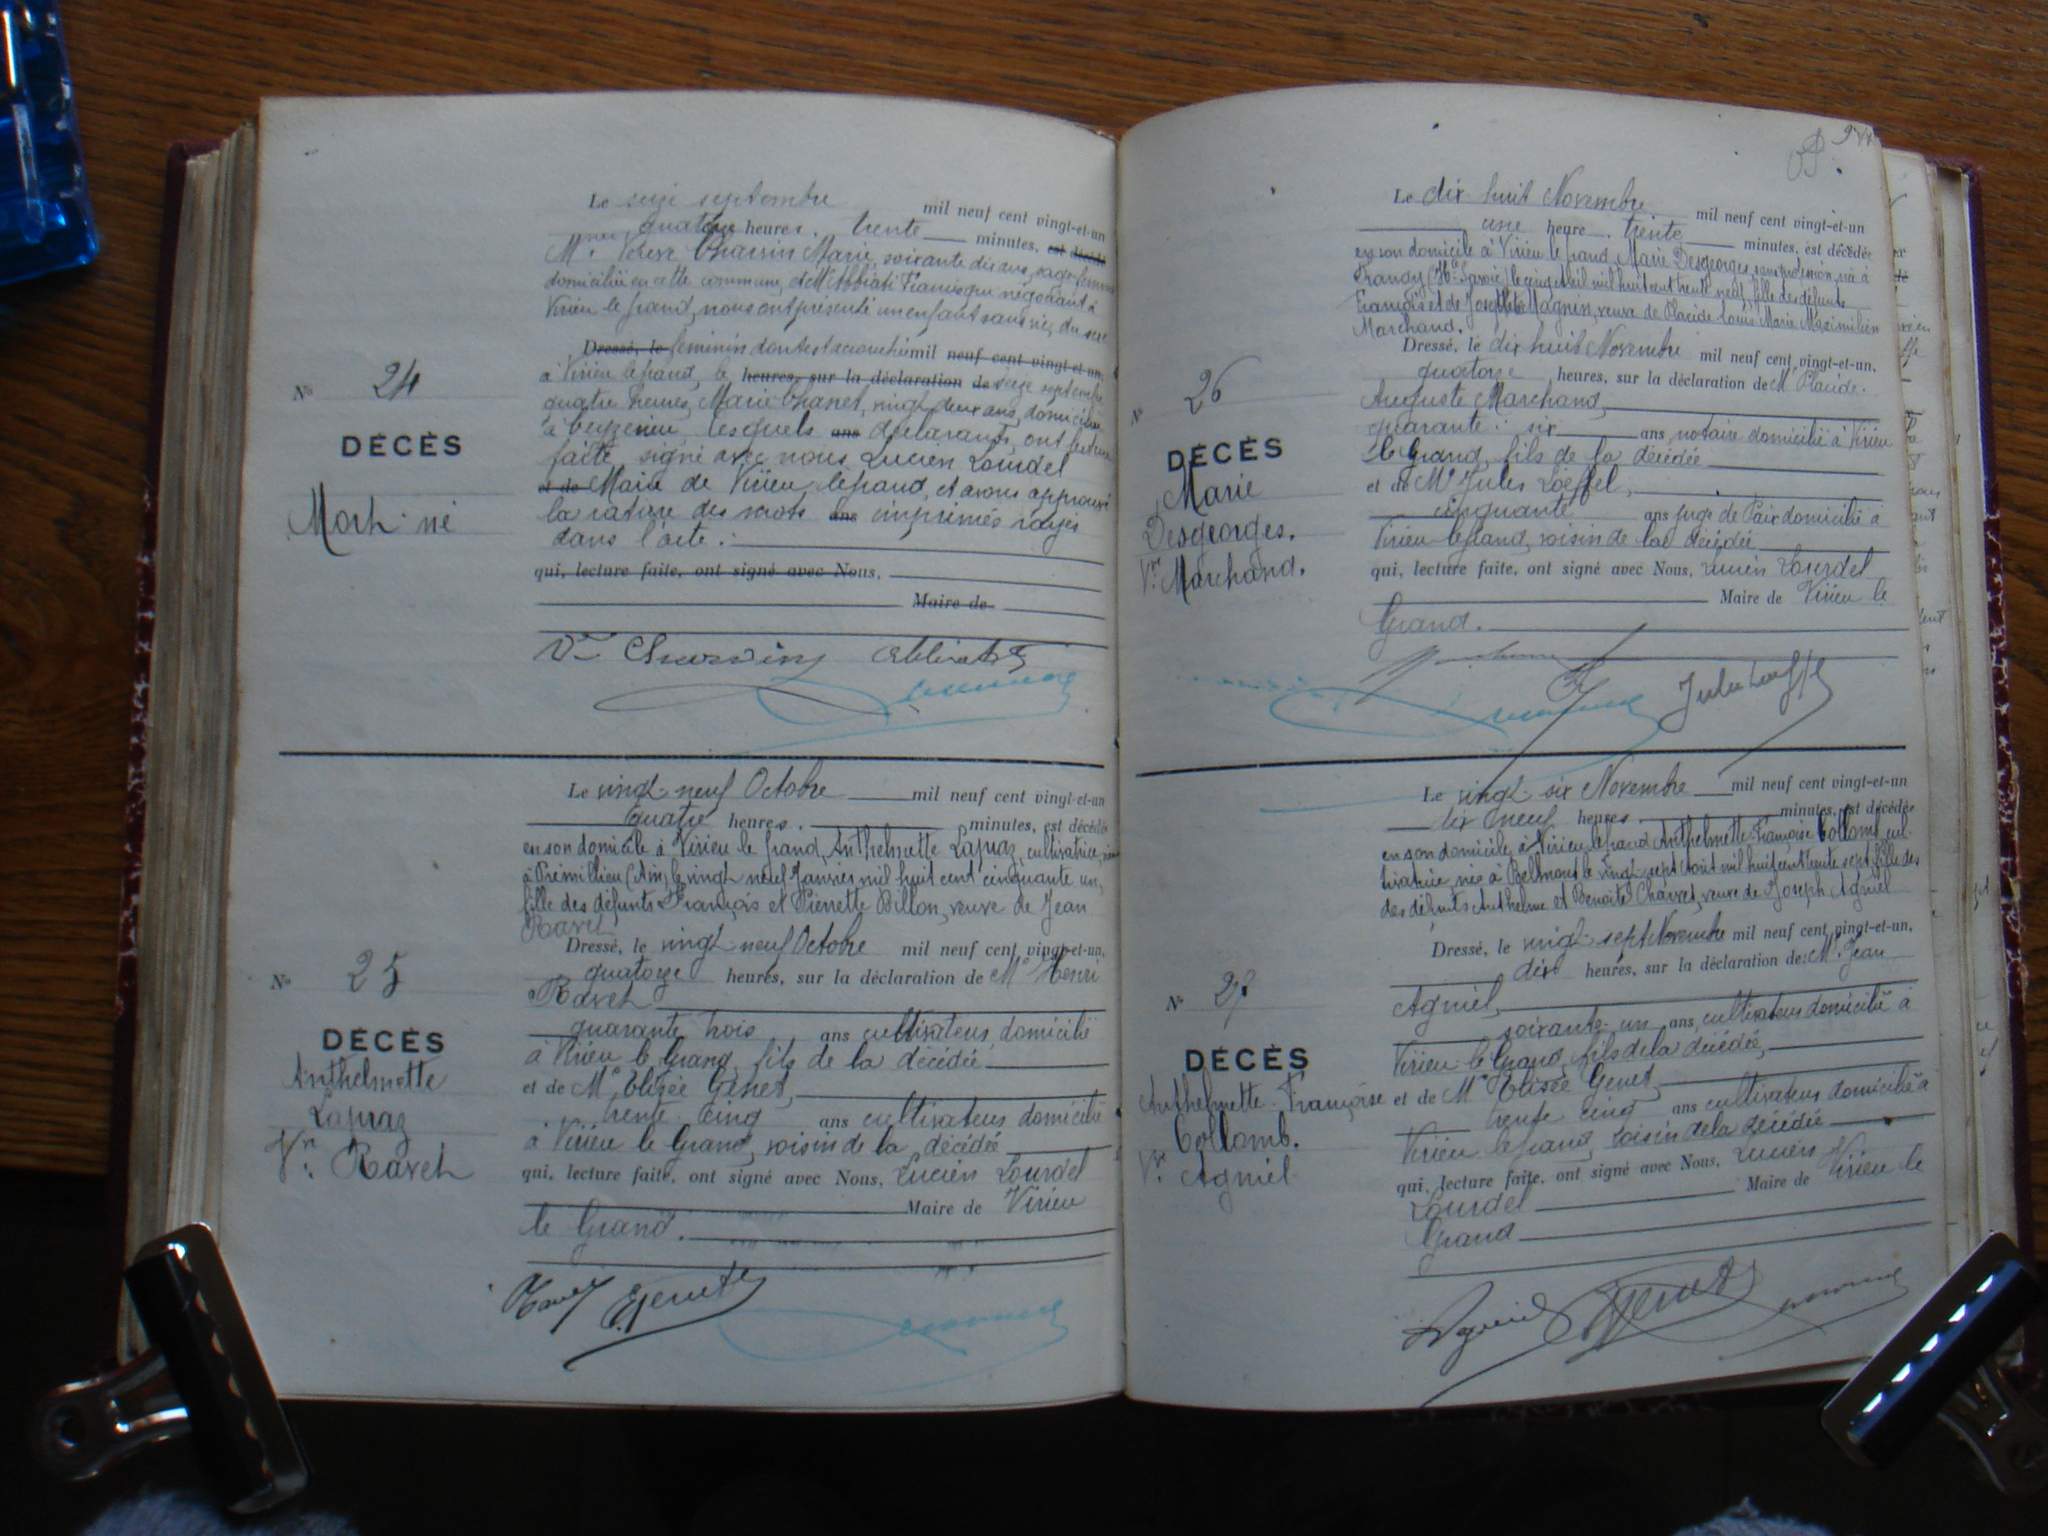 Le seize septembre mil neuf cent vingt-et-un
quatorze heures, trente minutes, est décédé
Marie, soixante dix ans, sage-femme
domiciliée en cette commune, et Mr Abbiati Francisque négociant à
Virieu le grand, nous ont présenté un enfant sans vie, du sexe
Dressé, le féminin dont est accouchée mil neuf cent vingt-et-un,
à Virieu le grand, le heures, sur la déclaration de seize septembre
quatre heures, Marie vingt deux ans, domiciliée
à Ceyzerieu lesquels ans déclarants, ont lecture
faite, signé avec nous Lucien Lourdel
et de Maire de Virieu le grand, et avons approuvé
la rature des mots ans imprimés rayés
dans l'acte.
qui, lecture faite, ont signé avec Nous,
Maire de
No 24
DÉCÈS
Mort-né
Vve Charvin Abbiati
Le vingt neuf Octobre mil neuf cent vingt-et-un
quatre heures, minutes, est décédée
en son domicile à Virieu le grand, Anthelmette Lapraz, cultivatrice, née
à Prémillieu (Ain) le vingt neuf Janvier mil huit cent cinquante un,
fille des défunts François et Pierrette Billon, veuve de Jean
Ravet
Dressé, le vingt neuf Octobre mil neuf cent vingt-et-un,
quatorze heures, sur la déclaration de Mr Henri
Ravet
quarante trois ans cultivateur, domicilié
à Virieu le Grand, fils de la décédée
et de Mr Elisée Genet,
trente cinq ans cultivateur domicilié
à Virieu le Grand, voisin de la décédée
qui, lecture faite, ont signé avec Nous, Lucien Lourdel
Maire de Virieu
le Grand.
No 25
DÉCÈS
Anthelmette
Lapraz
Vve Ravet
Ravet E Genet
Le dix huit Novembre mil neuf cent vingt-et-un
une heure trente minutes, est décédée
en son domicile à Virieu le grand, Marie Desgeorges, sans profession, née à
Frangy (Hte Savoie) le cinq avril mil huit cent trente neuf, fille des défunts
François et de Josephte Magnin, veuve de Placide Louis Marie Maximilien
Marchand.
Dressé, le dix huit Novembre mil neuf cent vingt-et-un,
quatorze heures, sur la déclaration de Mr Placide
Auguste Marchand,
quarante six ans, notaire domicilié à Virieu
le Grand, fils de la décédée
et de Mr Jules Loeffel,
cinquante ans Juge de Paix domicilié à
Virieu le grand, voisin de la décédée
qui, lecture faite, ont signé avec Nous, Lucien Lourdel
Maire de Virieu le
Grand.
No 26
DÉCÈS
Marie
Desgeorges.
Vve Marchand.
Jules Loeffel
Le vingt six Novembre mil neuf cent vingt-et-un
dix neuf heures minutes, est décédée
en son domicile, à Virieu le grand Anthelmette Françoise Collomb cul-
tivatrice, née à Belmont le vingt sept août mil huit cent trente sept fille des
des défunts Anthelme et Benoite Charvet, veuve de Joseph Agniel
Dressé, le vingt-sept Novembre mil neuf cent vingt-et-un,
dix heures, sur la déclaration de Mr Jean
Agniel,
soixante un ans, cultivateur domicilié à
Virieu le Grand, fils de la décédée,
et de Mr Elisée Genet,
trente cinq ans cultivateur domicilié à
Virieu le grand, voisin de la décédée
qui, lecture faite, ont signé avec Nous, Lucien
Lourdel Maire de Virieu le
Grand
No 27
DÉCÈS
Anthelmette-Françoise
Collomb.
Vve Agniel
Agniel E Genet